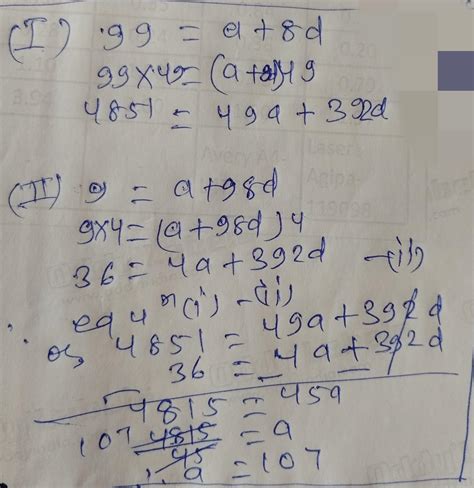 (I) 99 = a+8d
99×49= (a+8d)49
4851 = 49a+392d
Avery
(II) 9 = a+98d
9×4=(a+98d)4
36 = 4a+392d —(ii)
eq uⁿ(i) -(ii)
or, 4851 = 49a+392d
36 = 4a+392d
4815 = 45a
107 4815/45 = a
∴ a = 107